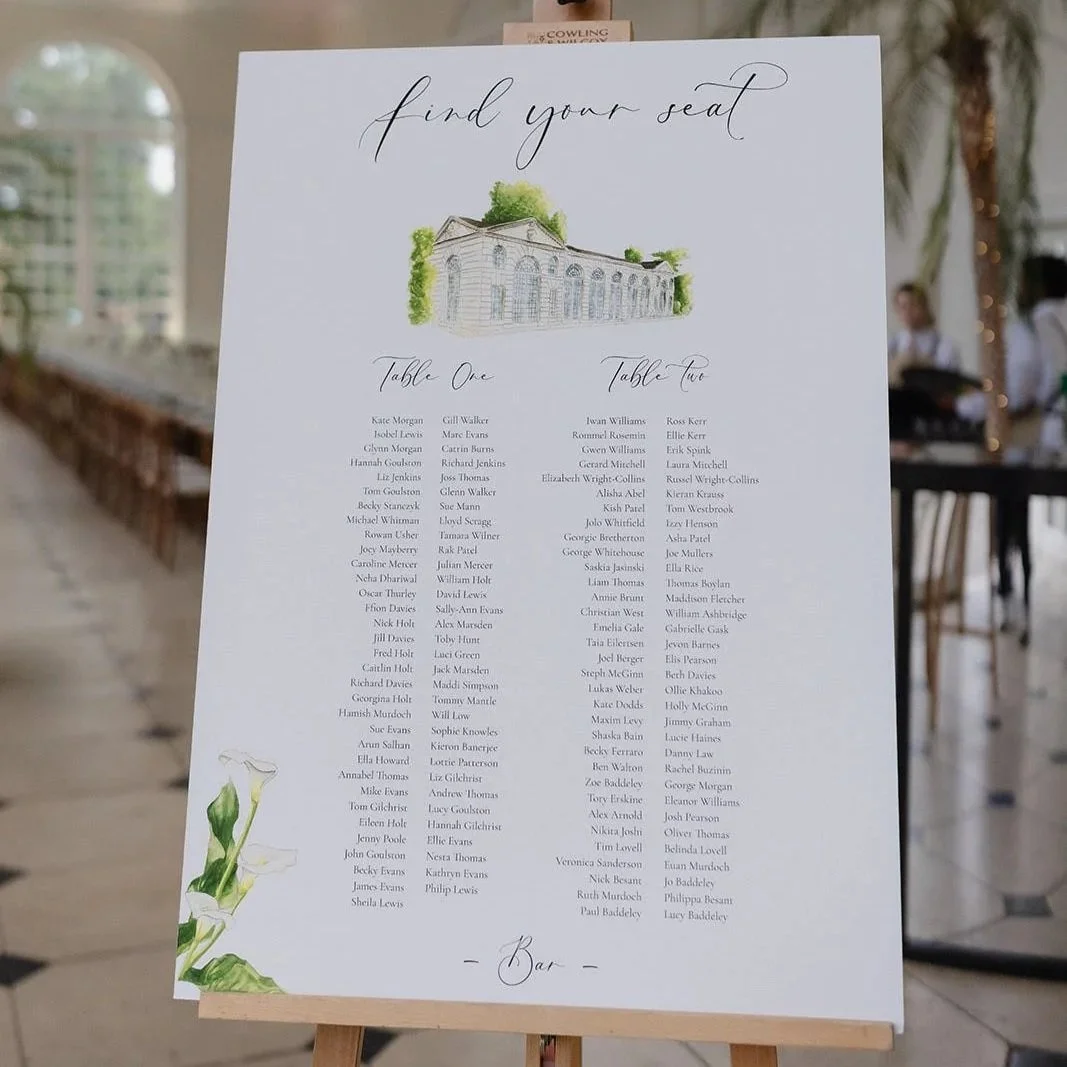 COWLING
& WILCOX
find your seat
Table One
Kate Morgan Gill Walker
Isobel Lewis Marc Evans
Glynn Morgan Catrin Burns
Hannah Goulston Richard Jenkins
Liz Jenkins Joss Thomas
Tom Goulston Glenn Walker
Becky Stanczyk Sue Mann
Michael Whitman Lloyd Scragg
Rowan Usher Tamara Wilner
Joey Mayberry Rak Patel
Caroline Mercer Julian Mercer
Neha Dhariwal William Holt
Oscar Thurley David Lewis
Ffion Davies Sally-Ann Evans
Nick Holt Alex Marsden
Jill Davies Toby Hunt
Fred Holt Luci Green
Caitlin Holt Jack Marsden
Richard Davies Maddi Simpson
Georgina Holt Tommy Mantle
Hamish Murdoch Will Low
Sue Evans Sophie Knowles
Arun Salhan Kieron Banerjee
Ella Howard Lottie Patterson
Annabel Thomas Liz Gilchrist
Mike Evans Andrew Thomas
Tom Gilchrist Lucy Goulston
Eileen Holt Hannah Gilchrist
Jenny Poole Ellie Evans
John Goulston Nesta Thomas
Becky Evans Kathryn Evans
James Evans Philip Lewis
Sheila Lewis
Table Two
Iwan Williams Ross Kerr
Rommel Rosemin Ellie Kerr
Gwen Williams Erik Spink
Gerard Mitchell Laura Mitchell
Elizabeth Wright-Collins Russel Wright-Collins
Alisha Abel Kieran Krauss
Kish Patel Tom Westbrook
Jolo Whitfield Izzy Henson
Georgie Bretherton Asha Patel
George Whitehouse Joe Mullers
Saskia Jasinski Ella Rice
Liam Thomas Thomas Boylan
Annie Brunt Maddison Fletcher
Christian West William Ashbridge
Emelia Gale Gabrielle Gask
Taia Eilertsen Jevon Barnes
Joel Berger Elis Pearson
Steph McGinn Beth Davies
Lukas Weber Ollie Khakoo
Kate Dodds Holly McGinn
Maxim Levy Jimmy Graham
Shaska Bain Lucie Haines
Becky Ferraro Danny Law
Ben Walton Rachel Buzinin
Zoe Baddeley George Morgan
Tory Erskine Eleanor Williams
Alex Arnold Josh Pearson
Nikita Joshi Oliver Thomas
Tim Lovell Belinda Lovell
Veronica Sanderson Euan Murdoch
Nick Besant Jo Baddeley
Ruth Murdoch Philippa Besant
Paul Baddeley Lucy Baddeley
- Bar -